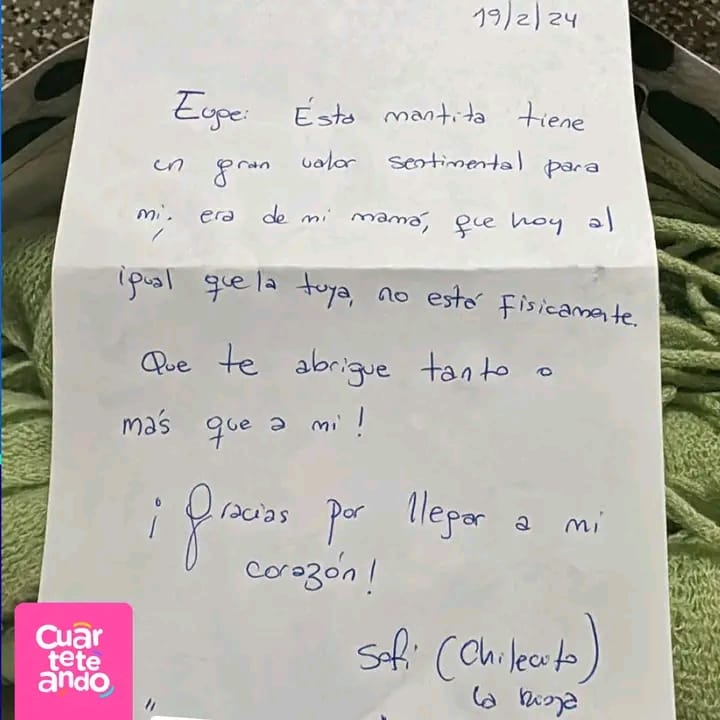 19/2/24
Euge: Ésta mantita tiene
un gran valor sentimental para
mi. era de mi mamá, que hoy al
igual que la tuya, no está físicamente.
Que te abrigue tanto o
más que a mi!
¡Gracias por llegar a mi
corazón!
Sofi (Chilecito)
La Rioja
Cuar
tete
ando